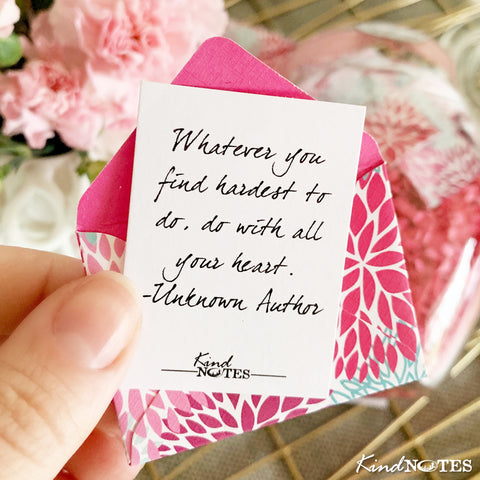 Whatever you
find hardest to
do, do with all
your heart.
-Unknown Author
Kind
NOTES
KindNOTES